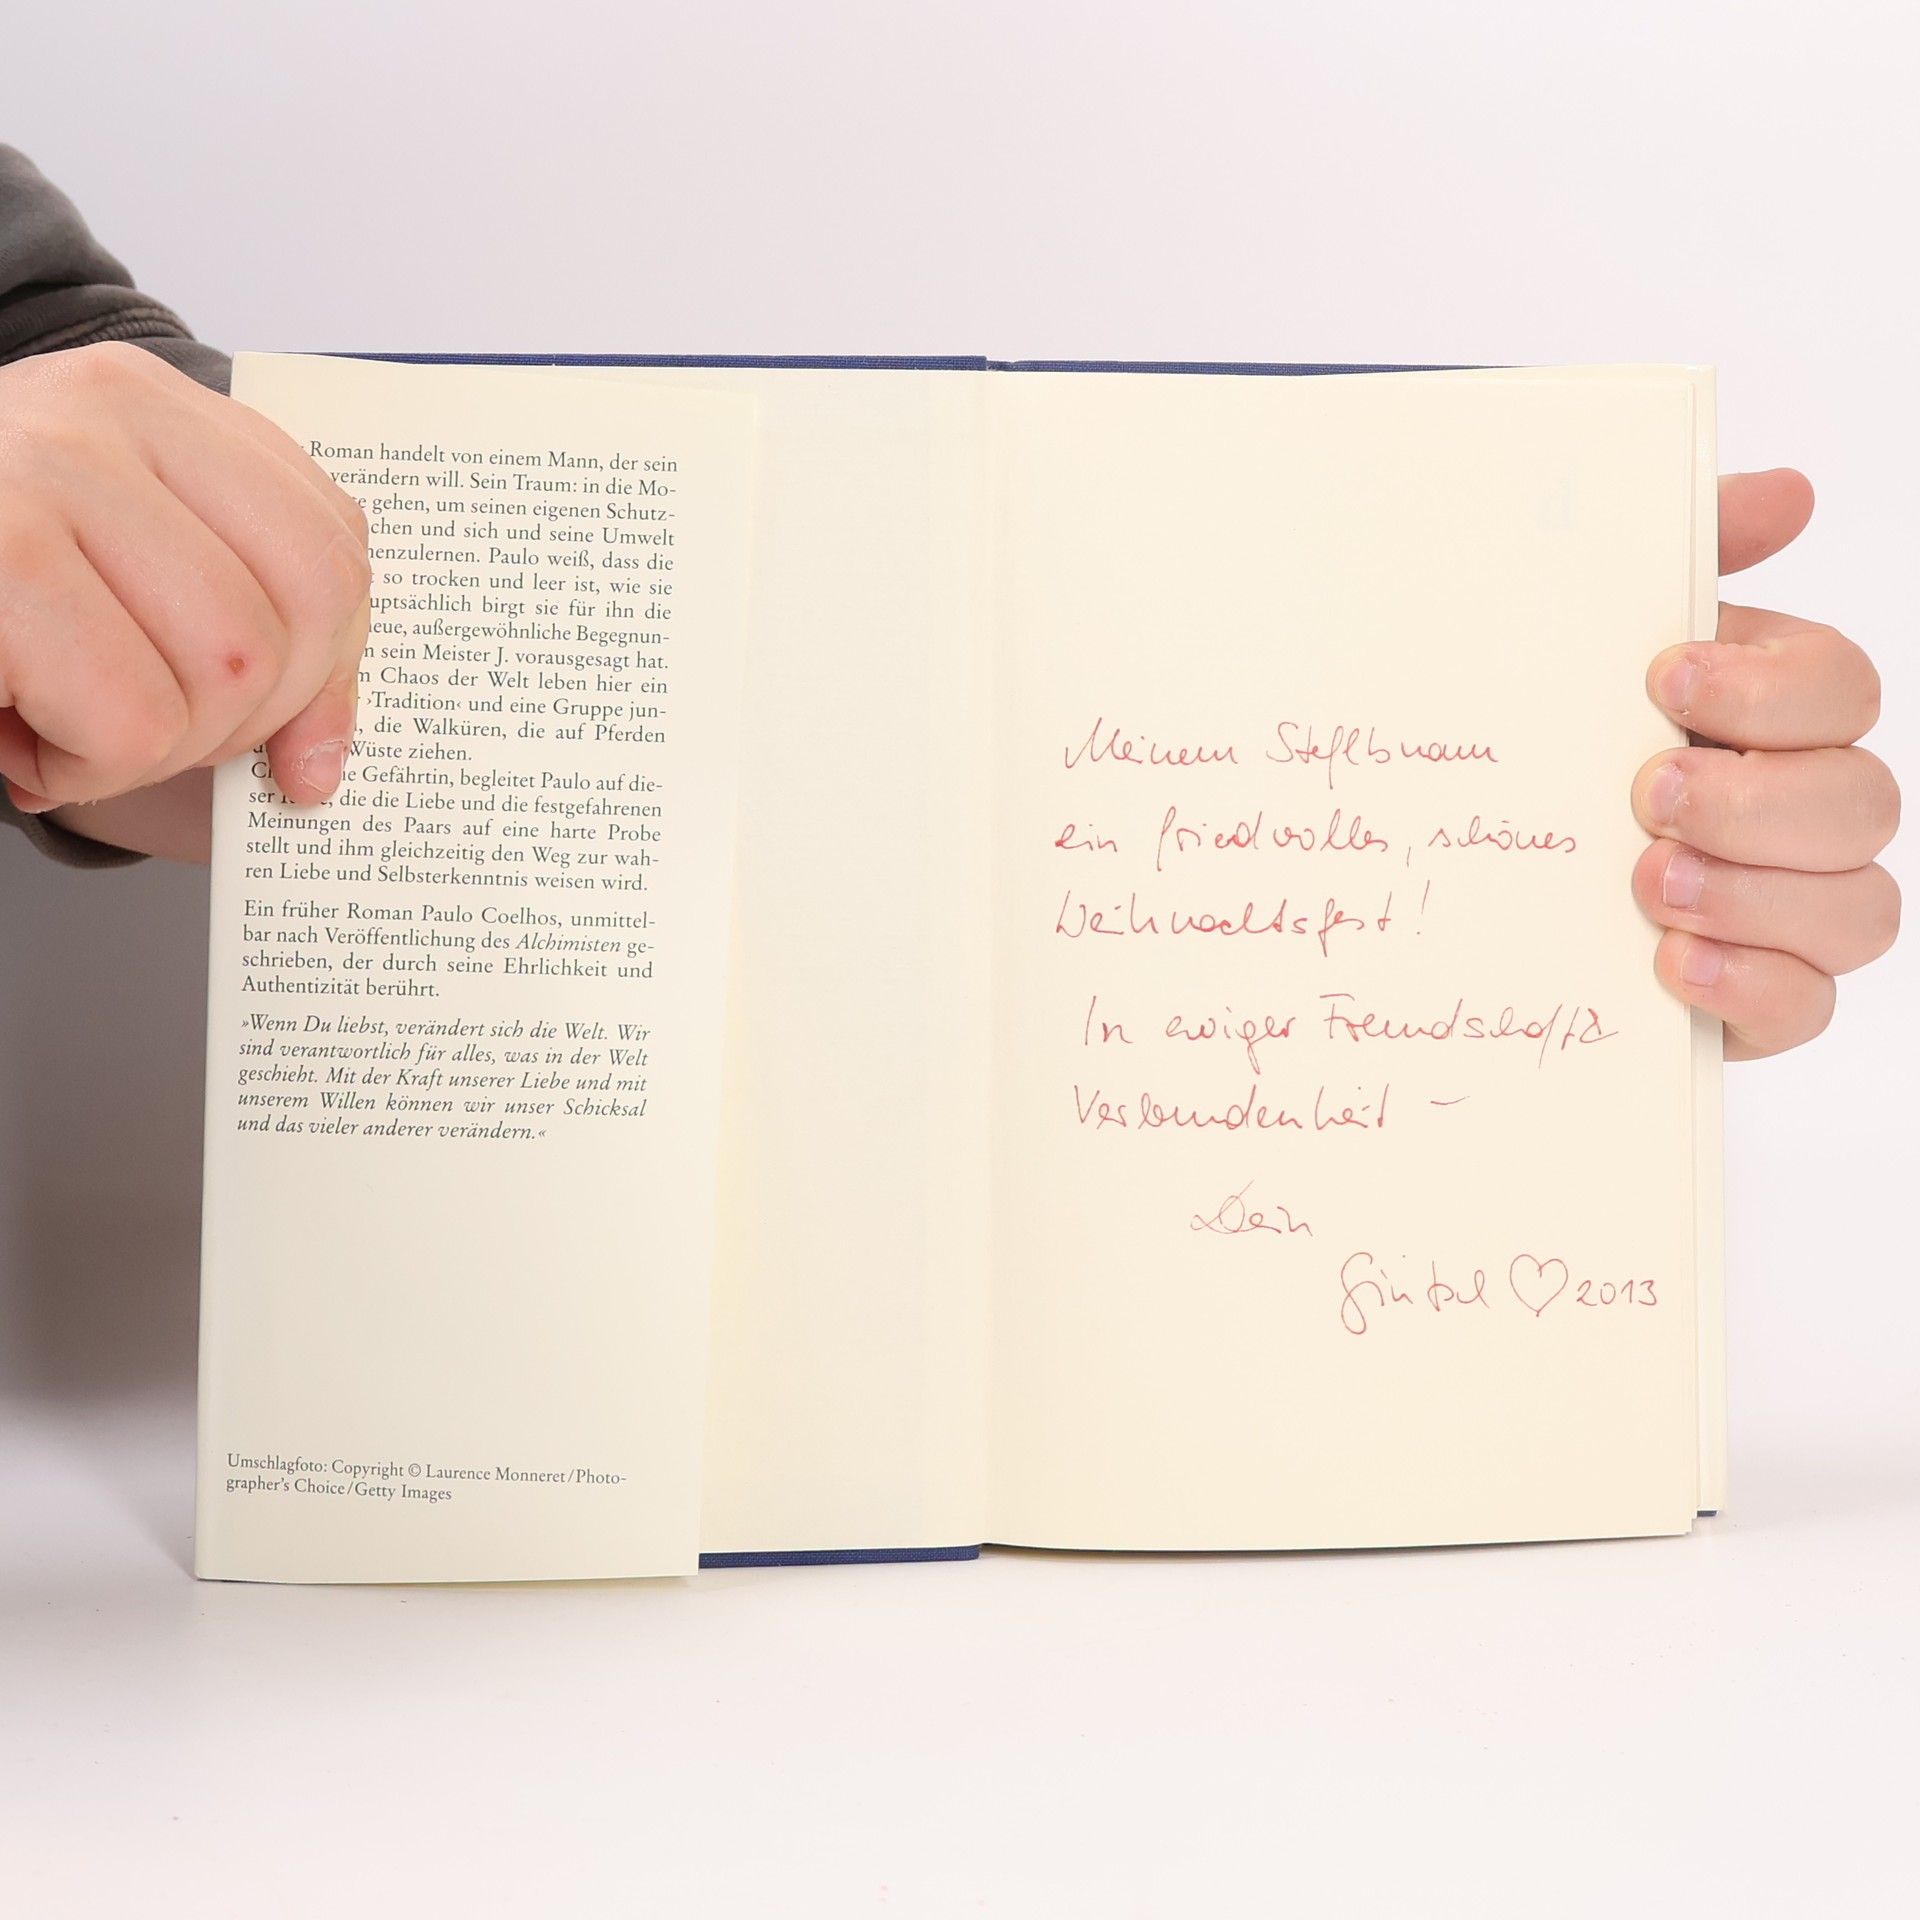 Roman handelt von einem Mann, der sein
verändern will. Sein Traum: in die Mo-
gehen, um seinen eigenen Schutz-
chen und sich und seine Umwelt
nenzulernen. Paulo weiß, dass die
so trocken und leer ist, wie sie
uptsächlich birgt sie für ihn die
neue, außergewöhnliche Begegnun-
sein Meister J. vorausgesagt hat.
m Chaos der Welt leben hier ein
›Tradition‹ und eine Gruppe jun-
, die Walküren, die auf Pferden
Wüste ziehen.
Gefährtin, begleitet Paulo auf die-
ser die die Liebe und die festgefahrenen
Meinungen des Paars auf eine harte Probe
stellt und ihm gleichzeitig den Weg zur wah-
ren Liebe und Selbsterkenntnis weisen wird.
Ein früher Roman Paulo Coelhos, unmittel-
bar nach Veröffentlichung des Alchimisten ge-
schrieben, der durch seine Ehrlichkeit und
Authentizität berührt.
»Wenn Du liebst, verändert sich die Welt. Wir
sind verantwortlich für alles, was in der Welt
geschieht. Mit der Kraft unserer Liebe und mit
unserem Willen können wir unser Schicksal
und das vieler anderer verändern.«
Umschlagfoto: Copyright © Laurence Monneret/Photo-
grapher's Choice/Getty Images
Meinem
ein friedvolles, schönes
Weihnachtsfest!
In ewiger
Verbundenheit –
Dein
♡ 2013